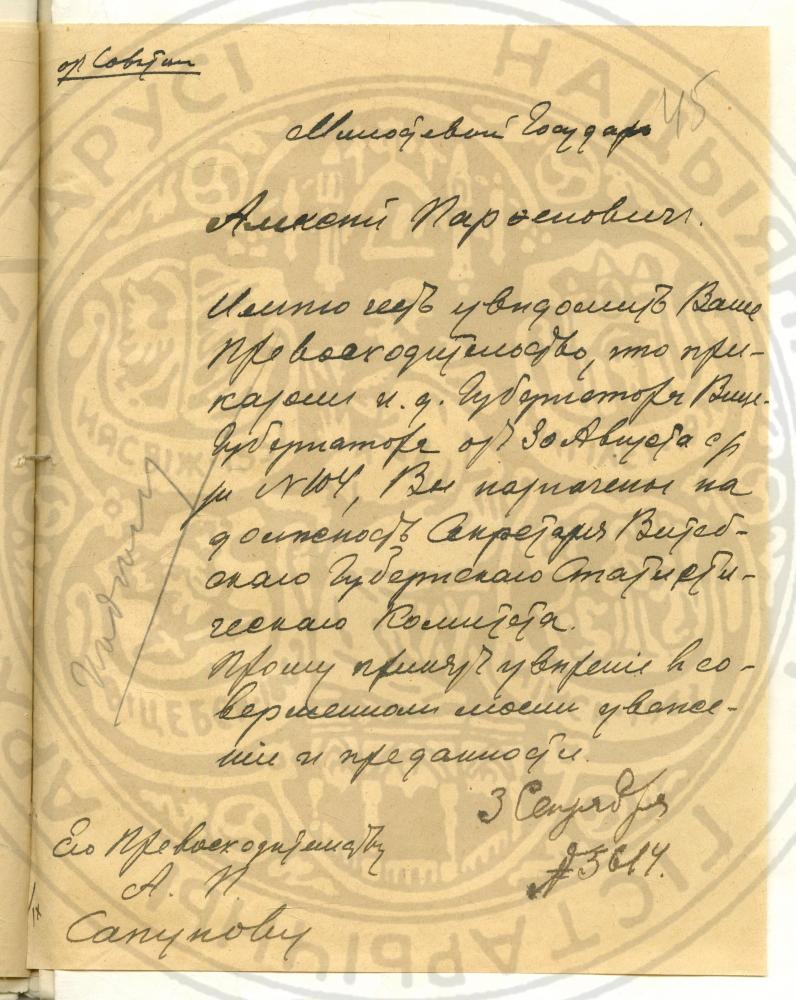 45
Милостивый Государь
Алексей Парѳенович.
Имѣю честь увѣдомить Ваше
Превосходительство, что при-
казом и. д. Губернатора Вице-
Губернатора от 30 Августа с/г
за №104, Вы назначены на
должность Секретаря Витеб-
скаго Губернскаго Статисти-
ческаго Комитета.
Прошу принять увѣреніе в со-
вершенном моем уваже-
ніи и преданности.
3 Сентября
№5614.
Его Превосходительству
А. П.
Сапунову